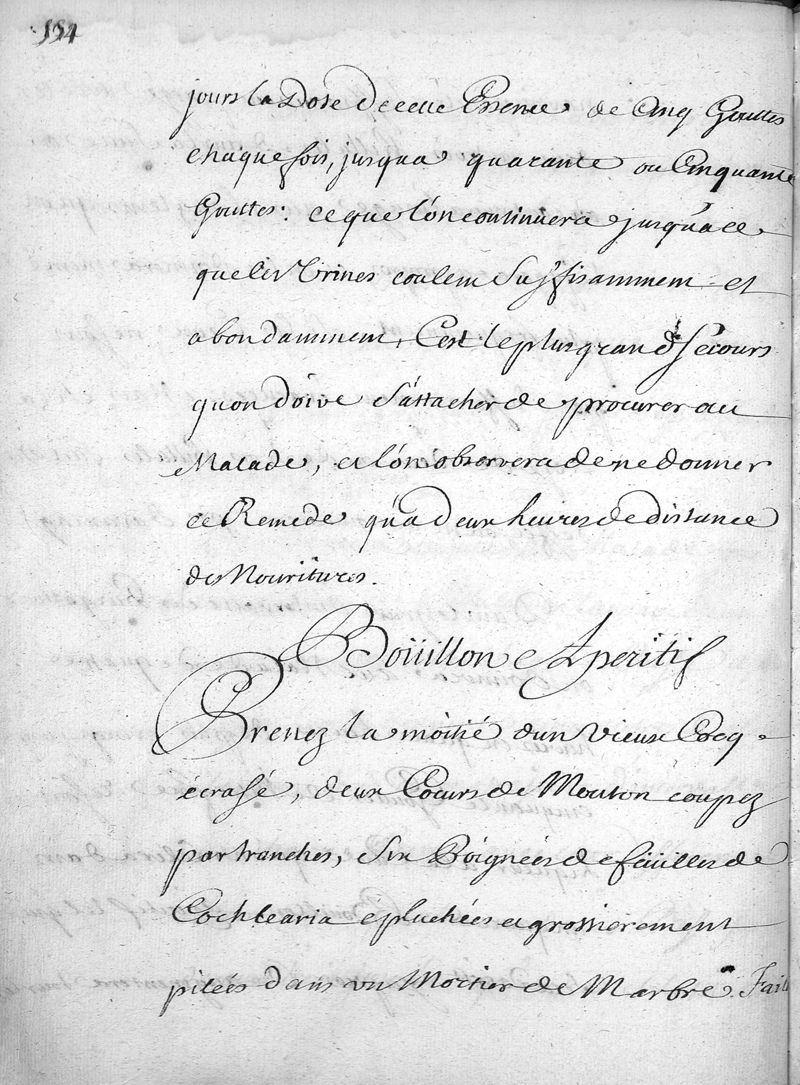 154
jours la Dose de cette Essence de Cinq Gouttes
chaque fois, jusqua quarante ou Cinquante
Gouttes: ce que l'on continüera jusqu'a ce
que les Vrines coulent Suffisamment et
abondamment, C'est le plus grand sécours
quon doive S'attacher de procurer au
Malade, et l'on observera de ne donner
ce Reméde qu'a deux heures de distance
des Nouritures.
Boüillon Aperitif
Prenez la moitié d'un Vieux Cocq
écrasé, deux Coeurs de Mouton coupez
par tranches, Six Poignées de feüilles de
Cochlearia epluchées et grossierement
pilées dans vn Mortier de Marbre. Fait